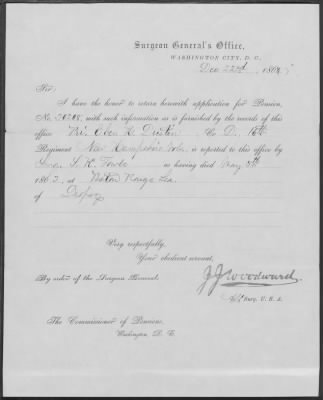 Surgeon General's Office,
WASHINGTON CITY, D. C.
Dec 22nd, 186
Sir:
I have the honor to return herewith application for Pension,
No. with such information as is furnished by the records of this
office Co D. 16th
Regiment New Hampshire Vols., is reported to this office by
S. K. Towle as having died May
1863, at Baton Rouge La.
of
Very respectfully,
Your obedient servant,
By order of the Surgeon General:
J J Woodward
Surg. U. S. A.
The Commissioner of Pensions,
Washington, D. C.